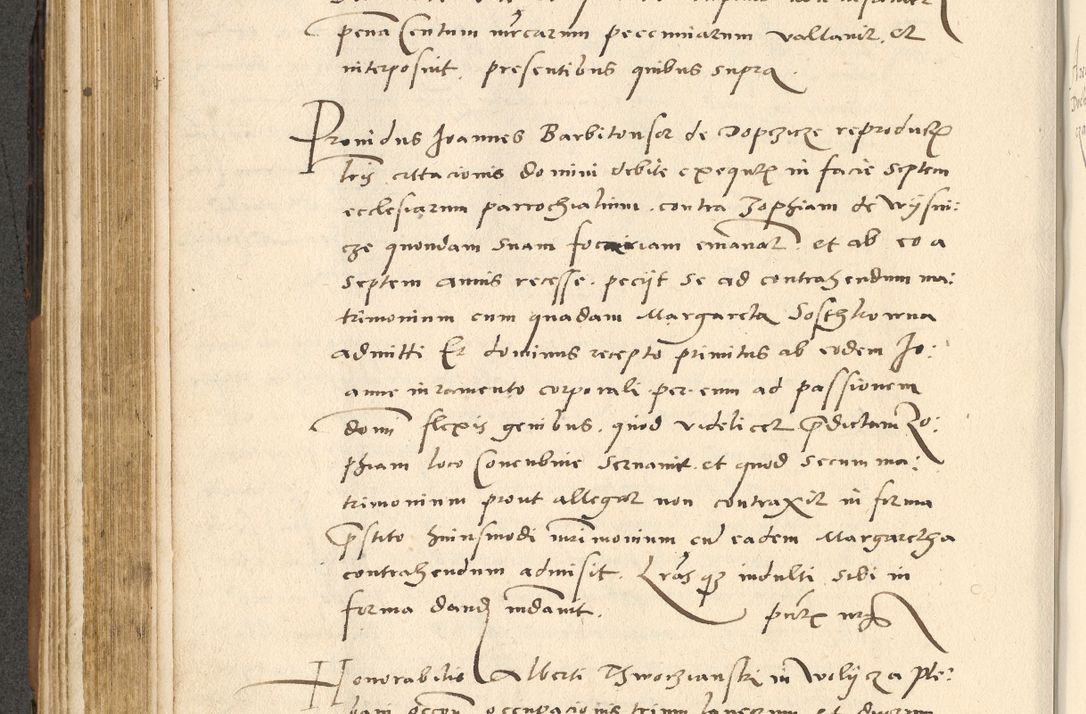 pena Centum mrcarum peccuniarum vallavit. et
interposuit, presentibus quibus supra.
Providus Joannes Barbitonsor de Dopczicze reproductis
lris cittacionis domini debite exequtis in facie septem
ecclesiarum parrochialium. contra Zophiam de Wÿsni:
cze quondam suam focariam emanat. et ab eo a
septem annis recesse. peciit se ad contrahendum ma:
trimonium cum quadam Margaretha
admitti Et dominus recepto primitus ab eodem Jo:
anne iuramento corporali per eum ad passionem
domi flexis genibus. quod videlicet pdictam Zo:
phiam loco Concubine servavit. et quod secum ma:
trimonium prout allegat non contraxit in forma
pstito huiusmodi mrimonium cum eadem Margaretha
contrahendum admisit. Lrasque indulti sibi in
forma dandas mdavit. pntibus
Honorabilis Alberti in Wolÿcza Ple:
bani occupacionis trium laneorum et duorum